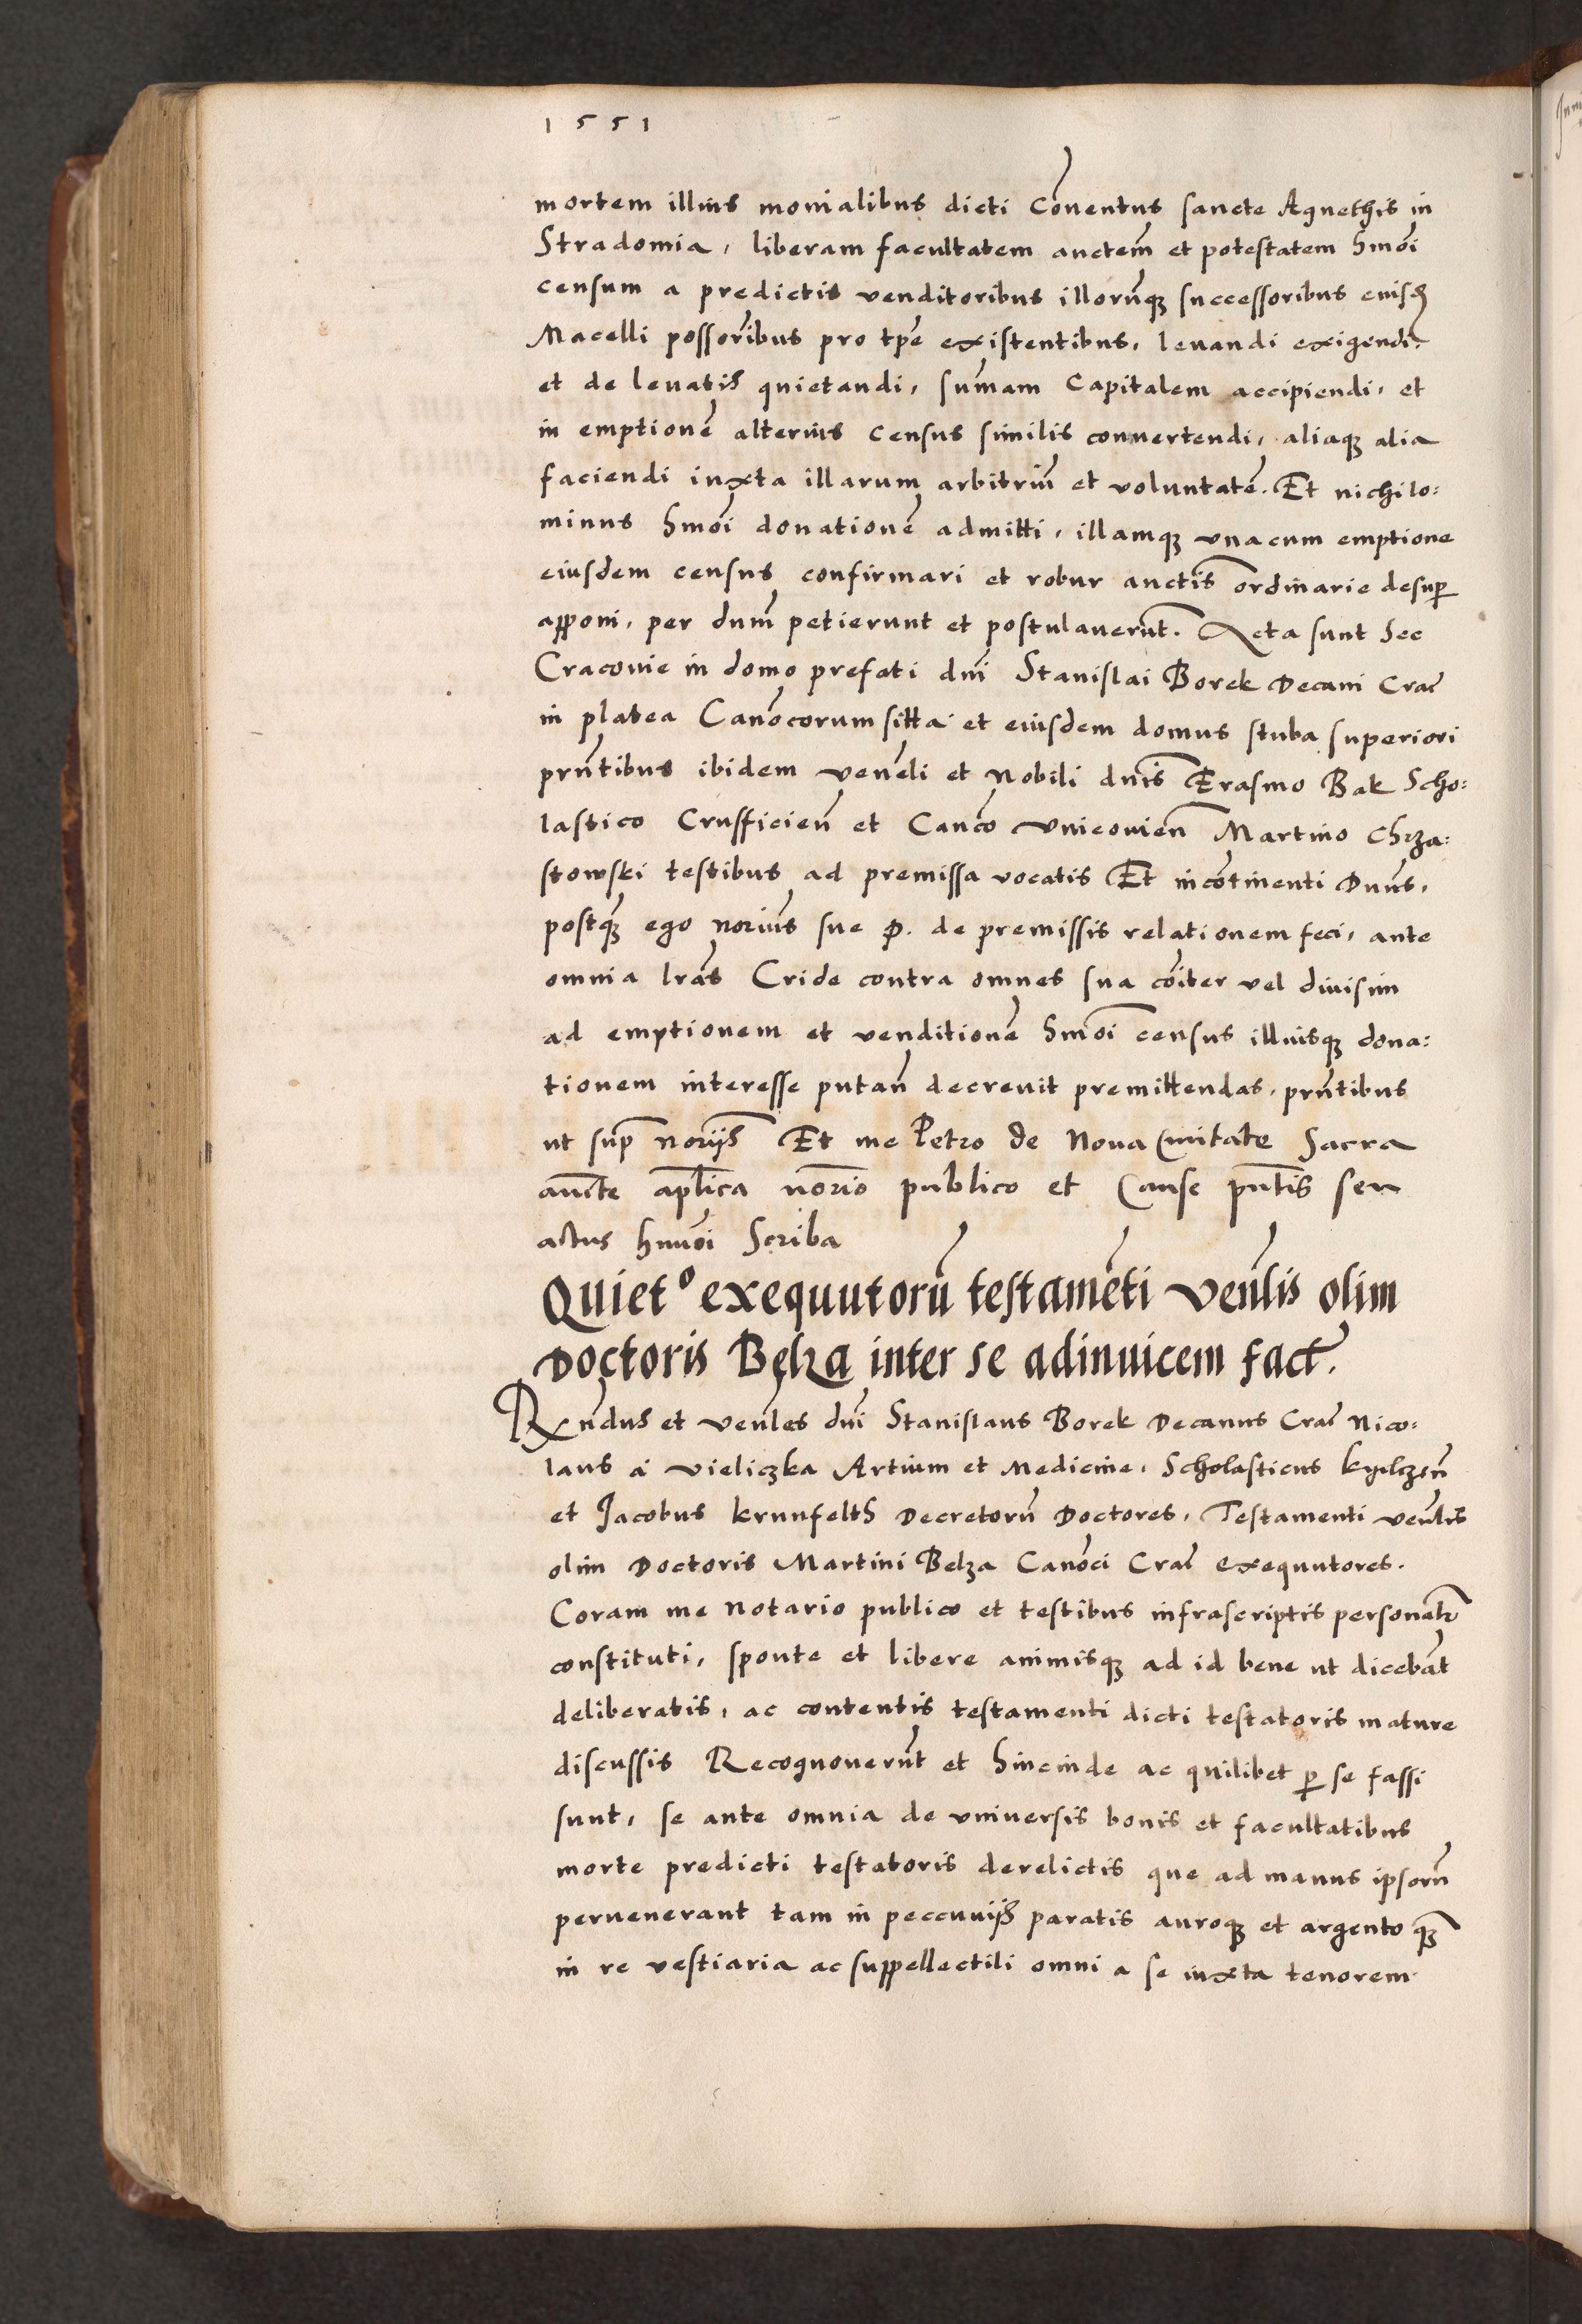 1551
mortem illius monialibus dicti Cõnentus sancte Agnethis in
Stradomia, liberam facultatem auctem̃ et potestatem hmõi
censum a predictis venditoribus illorũqꝫ successoribus eiusd̃
Macelli possor̃ibus pro tpẽ existentibus, leuandi exigendi
et de leuatis quietandi, sum̃am Capitalem accipiendi, et
in emptionẽ alterius Census similis conuertendi, aliaqꝫ alia
faciendi iuxta illarum arbitriũ et voluntatẽ. Et nichilo:
minus hmõi donationẽ admitti, illamqꝫ vnacum emptione
eiusdem census confirmari et robur auctis̃ ordinarie desuꝑ
apponi, per dum̃ petierunt et postulauerũt. Acta sunt hec
Cracouie in domo prefati dñi Stanislai Borek Decani Crac̃
in platea Canõcorum sitta et eiusdem domus stuba superiori
prñtibus ibidem veneľi et Nobili dnĩs Erasmo Bak Scho:
lastico Crufficieñ et Canc̃o vnieouieñ Martino Chrza:
stowski testibus ad premissa vocatis Et incõtinenti Dnũs,
postqꝫ̃ ego noriũs sue P. de premissis relationem feci, ante
omnia lr̃as Cride contra omnes sua cõiter vel diuisim
ad emptionem et venditionẽ hmõi census illiusqꝫ dona:
tionem interesse putañ decreuit premittendas, prñtibus
ut supr̃ norijs̃ Et me Petro de Noua Ciuitate Sacra
auc̃te apl̃ica nor̃io publico et Cause pñtis seu
actus hmõi Scriba
Quiet° exequutorũ testamẽti Veñlis olim
Doctoris Bęlza inter se adinuicem fact̃.
Rxñdus et veñles dñi Stanislaus Borek Decanus Crac̃ Nico:
laus á vieliczka Artium et Medicine, Scholasticus kyelczeñ
et Jacobus krunfelth Decretorũ Doctores, Testamenti veñlis
olim Doctoris Martini Belza Canõci Crac̃ exequutores.
Coram me Notario publico et testibus infrascriptis personal̃r
constituti, sponte et libere animisqꝫ ad id bene ut dicebãt
deliberatis, ac contentis testamenti dicti testatoris mature
discussis Recognouerũt et hincinde ac quilibet ꝑ se fassi
sunt, se ante omnia de vniuersis bonis et facultatibus
morte predicti testatoris derelictis que ad manus ipsorũ
peruenerant tam in peccunijs paratis auroqꝫ et argento qꝫ̃
in re vestiaria ac suppellectili omni a se iuxta tenorem